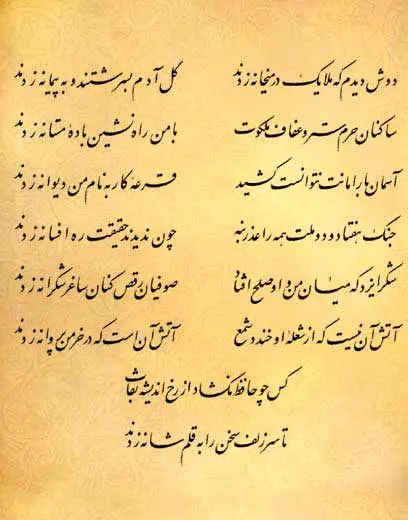 دوش دیدم که ملایک در میخانه زدند گل آدم بسرشتند و به پیمانه زدند
ساکنان حرم ستر و عفاف ملکوت با من راه نشین باده مستانه زدند
آسمان بار امانت نتوانست کشید قرعه کار به نام من دیوانه زدند
جنگ هفتاد و دو ملت همه را عذر بنه چون ندیدند حقیقت ره افسانه زدند
شکر ایزد که میان من و او صلح افتاد صوفیان رقص کنان ساغر شکرانه زدند
آتش آن نیست که از شعله او خندد شمع آتش آن است که در خرمن پروانه زدند
کس چو حافظ نگشاد از رخ اندیشه نقاب
تا سر زلف سخن را به قلم شانه زدند